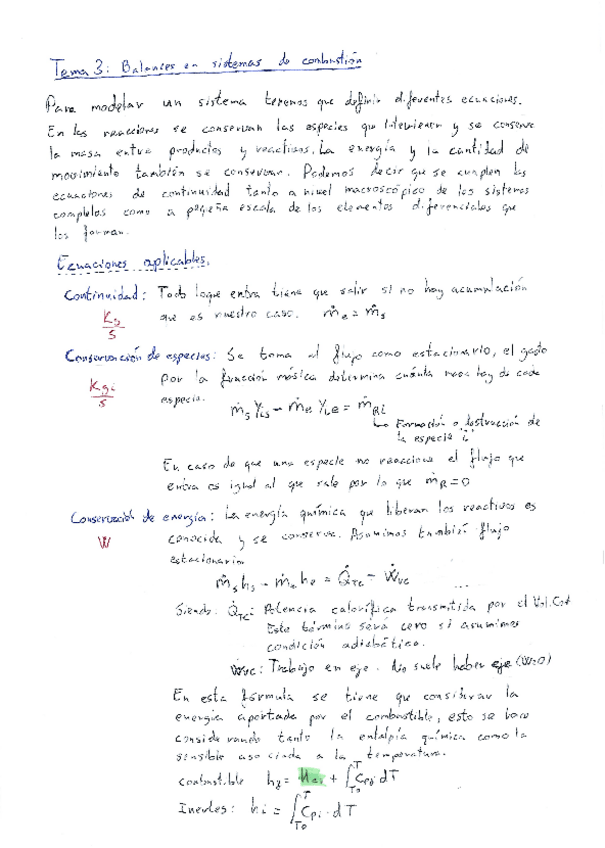 Tema 3: Balances en sistemas de combustión
Para modelar un sistema tenemos que definir diferentes ecuaciones.
En las reacciones se conservan las especies que intervienen y se conserva
la masa entre productos y reactivos. La energía y la cantidad de
movimiento también se conservan. Podemos decir que se cumplen las
ecuaciones de continuidad tanto a nivel macroscópico de los sistemas
completos como a pequeña escala de los elementos diferenciales que
los forman.
Ecuaciones aplicables.
Continuidad: Todo lo que entra tiene que salir si no hay acumulación
Kg/s que es nuestro caso. ṁe = ṁs
Conservación de especies: Se toma el flujo como estacionario, el gasto
Kgi/s por la fracción másica determina cuánta masa hay de cada
especie.
ṁs Yis - ṁe Yie = ṁRi
↳ Formación o destrucción de
la especie "i"
En caso de que una especie no reaccione el flujo que
entra es igual al que sale por lo que ṁR = 0
Conservación de energía: La energía química que liberan los reactivos es
W conocida y se conserva. Asumimos también flujo
estacionario
ṁs hs - ṁe he = Q̇TC - ẆVC
Siendo: Q̇TC: Potencia calorífica transmitida por el Vol. Cont
Este término será cero si asumimos
condición adiabática.
ẆVC: Trabajo en eje. No suele haber eje (W=0)
En esta fórmula se tiene que considerar la
energía aportada por el combustible, esto se hace
considerando tanto la entalpía química como la
sensible asociada a la temperatura.
Combustible hj = + ∫T0T Cpj dT
Inertes: hi = ∫T0T Cpi · dT